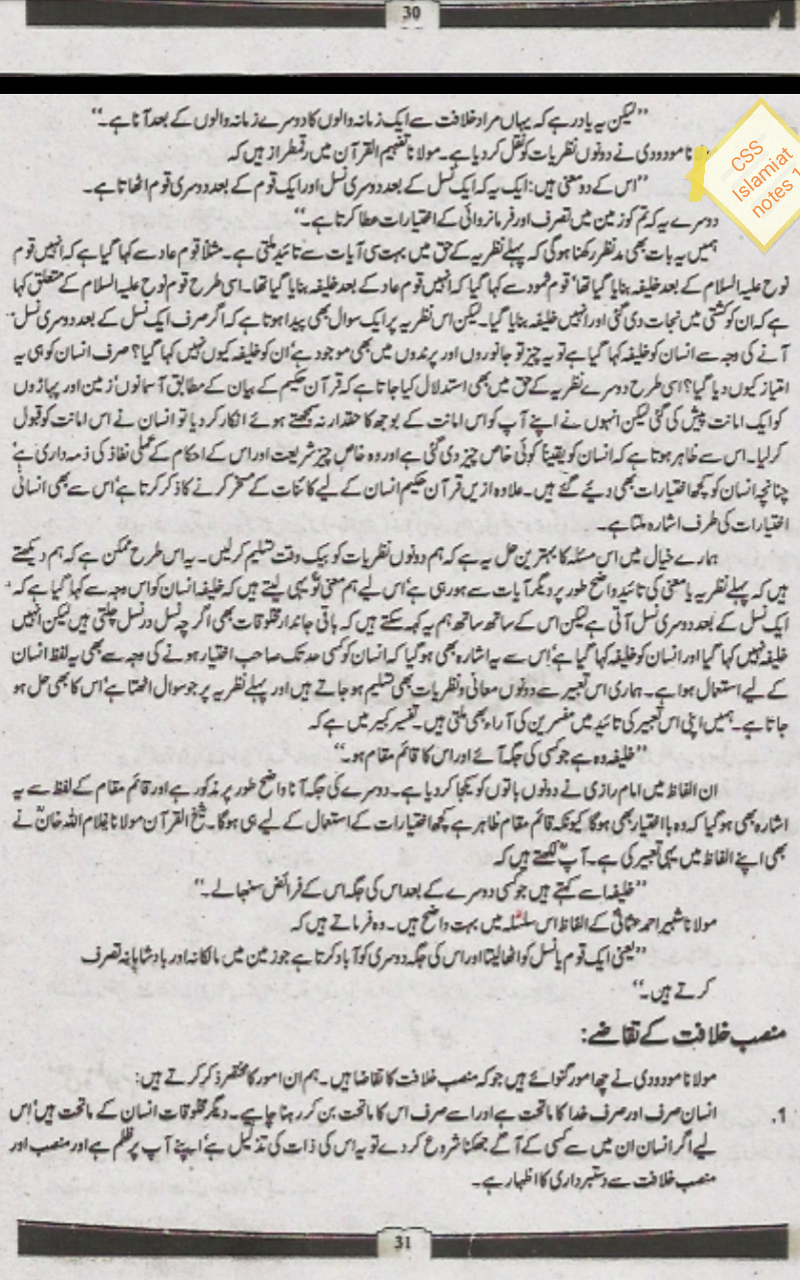 30
"لیکن یہ یاد رہے کہ یہاں مراد خلافت سے ایک زمانہ والوں کا دوسرے زمانہ والوں کے بعد آنا ہے۔"
مولانا مودودی نے دونوں نظریات کو نقل کر دیا ہے۔ مولانا تفہیم القرآن میں رقمطراز ہیں کہ
"اس کے دو معنی ہیں: ایک یہ کہ ایک نسل کے بعد دوسری نسل اور ایک قوم کے بعد دوسری قوم اٹھاتا ہے۔
دوسرے یہ کہ تم کو زمین میں تصرف اور فرمانروائی کے اختیارات عطا کرتا ہے۔"
ہمیں یہ بات بھی مدنظر رکھنا ہوگی کہ پہلے نظریہ کے حق میں بہت سی آیات سے تائید ملتی ہے۔ مثلاً قوم عاد سے کہا گیا ہے کہ انہیں قوم
نوح علیہ السلام کے بعد خلیفہ بنایا گیا تھا' قوم ثمود سے کہا گیا کہ انہیں قوم عاد کے بعد خلیفہ بنایا گیا تھا۔ اسی طرح قوم نوح علیہ السلام کے متعلق کہا
ہے کہ ان کو کشتی میں نجات دی گئی اور انہیں خلیفہ بنایا گیا۔ لیکن اس نظریہ پر ایک سوال بھی پیدا ہوتا ہے کہ اگر صرف ایک نسل کے بعد دوسری نسل
آنے کی وجہ سے انسان کو خلیفہ کہا گیا ہے تو یہ چیز تو جانوروں اور پرندوں میں بھی موجود ہے' ان کو خلیفہ کیوں نہیں کہا گیا؟ صرف انسان کو ہی یہ
امتیاز کیوں دیا گیا؟ اسی طرح دوسرے نظریہ کے حق میں بھی استدلال کیا جاتا ہے کہ قرآن حکیم کے بیان کے مطابق آسمانوں' زمین اور پہاڑوں
کو ایک امانت پیش کی گئی لیکن انہوں نے اپنے آپ کو اس امانت کے بوجھ کا حقدار نہ سمجھتے ہوئے انکار کر دیا تو انسان نے اس امانت کو قبول
کر لیا۔ اس سے ظاہر ہوتا ہے کہ انسان کو یقیناً کوئی خاص چیز دی گئی ہے اور وہ خاص چیز شریعت اور اس کے احکام کے عملی نفاذ کی ذمہ داری ہے'
چنانچہ انسان کو کچھ اختیارات بھی دیئے گئے ہیں۔ علاوہ ازیں قرآن حکیم انسان کے لیے کائنات کے مسخر کرنے کا ذکر کرتا ہے' اس سے بھی انسانی
اختیارات کی طرف اشارہ ملتا ہے۔
ہمارے خیال میں اس مسئلہ کا بہترین حل یہ ہے کہ ہم دونوں نظریات کو بیک وقت تسلیم کر لیں۔ یہ اس طرح ممکن ہے کہ ہم دیکھتے
ہیں کہ پہلے نظریہ یا معنی کی تائید واضح طور پر دیگر آیات سے ہو رہی ہے' اس لیے ہم معنی تو یہی لیتے ہیں کہ خلیفہ انسان کو اس وجہ سے کہا گیا ہے کہ
ایک نسل کے بعد دوسری نسل آتی ہے لیکن اس کے ساتھ ساتھ ہم یہ کہہ سکتے ہیں کہ باقی جاندار مخلوقات بھی اگرچہ نسل در نسل چلتی ہیں لیکن انہیں
خلیفہ نہیں کہا گیا اور انسان کو خلیفہ کہا گیا ہے' اس سے یہ اشارہ بھی ہو گیا کہ انسان کو کسی حد تک صاحب اختیار ہونے کی وجہ سے بھی یہ لفظ انسان
کے لیے استعمال ہوا ہے۔ ہماری اس تعبیر سے دونوں معانی و نظریات بھی تسلیم ہو جاتے ہیں اور پہلے نظریہ پر جو سوال اٹھتا ہے' اس کا بھی حل ہو
جاتا ہے۔ ہمیں اپنی اس تعبیر کی تائید میں مفسرین کی آراء بھی ملتی ہیں۔ تفسیر کبیر میں ہے کہ
"خلیفہ وہ ہے جو کسی کی جگہ آئے اور اس کا قائم مقام ہو۔"
ان الفاظ میں امام رازی نے دونوں باتوں کو یکجا کر دیا ہے۔ دوسرے کی جگہ آنا واضح طور پر مذکور ہے اور قائم مقام کے لفظ سے یہ
اشارہ بھی ہو گیا کہ وہ با اختیار بھی ہوگا کیونکہ قائم مقام ظاہر ہے کچھ اختیارات کے استعمال کے لیے ہی ہوگا۔ شیخ القرآن مولانا غلام اللہ خانؒ نے
بھی اپنے الفاظ میں یہی تعبیر کی ہے۔ آپؒ لکھتے ہیں کہ
"خلیفہ اسے کہتے ہیں جو کسی دوسرے کے بعد اس کی جگہ اس کے فرائض سنبھالے۔"
مولانا شبیر احمد عثمانیؒ کے الفاظ اس سلسلہ میں بہت واضح ہیں۔ وہ فرماتے ہیں کہ
"یعنی ایک قوم یا نسل کو اٹھا لیتا اور اس کی جگہ دوسری کو آباد کرتا ہے جو زمین میں مالکانہ اور بادشاہانہ تصرف
کرتے ہیں۔"
منصب خلافت کے تقاضے:
مولانا مودودی نے چھ امور گنوائے ہیں جو کہ منصب خلافت کا تقاضا ہیں۔ ہم ان امور کا مختصر ذکر کرتے ہیں:
1. انسان صرف اور صرف خدا کا ماتحت ہے اور اسے صرف اس کا ماتحت بن کر رہنا چاہیے۔ دیگر مخلوقات انسان کے ماتحت ہیں' اس
لیے اگر انسان ان میں سے کسی کے آگے جھکنا شروع کر دے تو یہ اس کی ذات کی تذلیل ہے' اپنے آپ پر ظلم ہے اور منصب اور
منصب خلافت سے دستبرداری کا اظہار ہے۔
31
CSS
Islamiat
notes 1